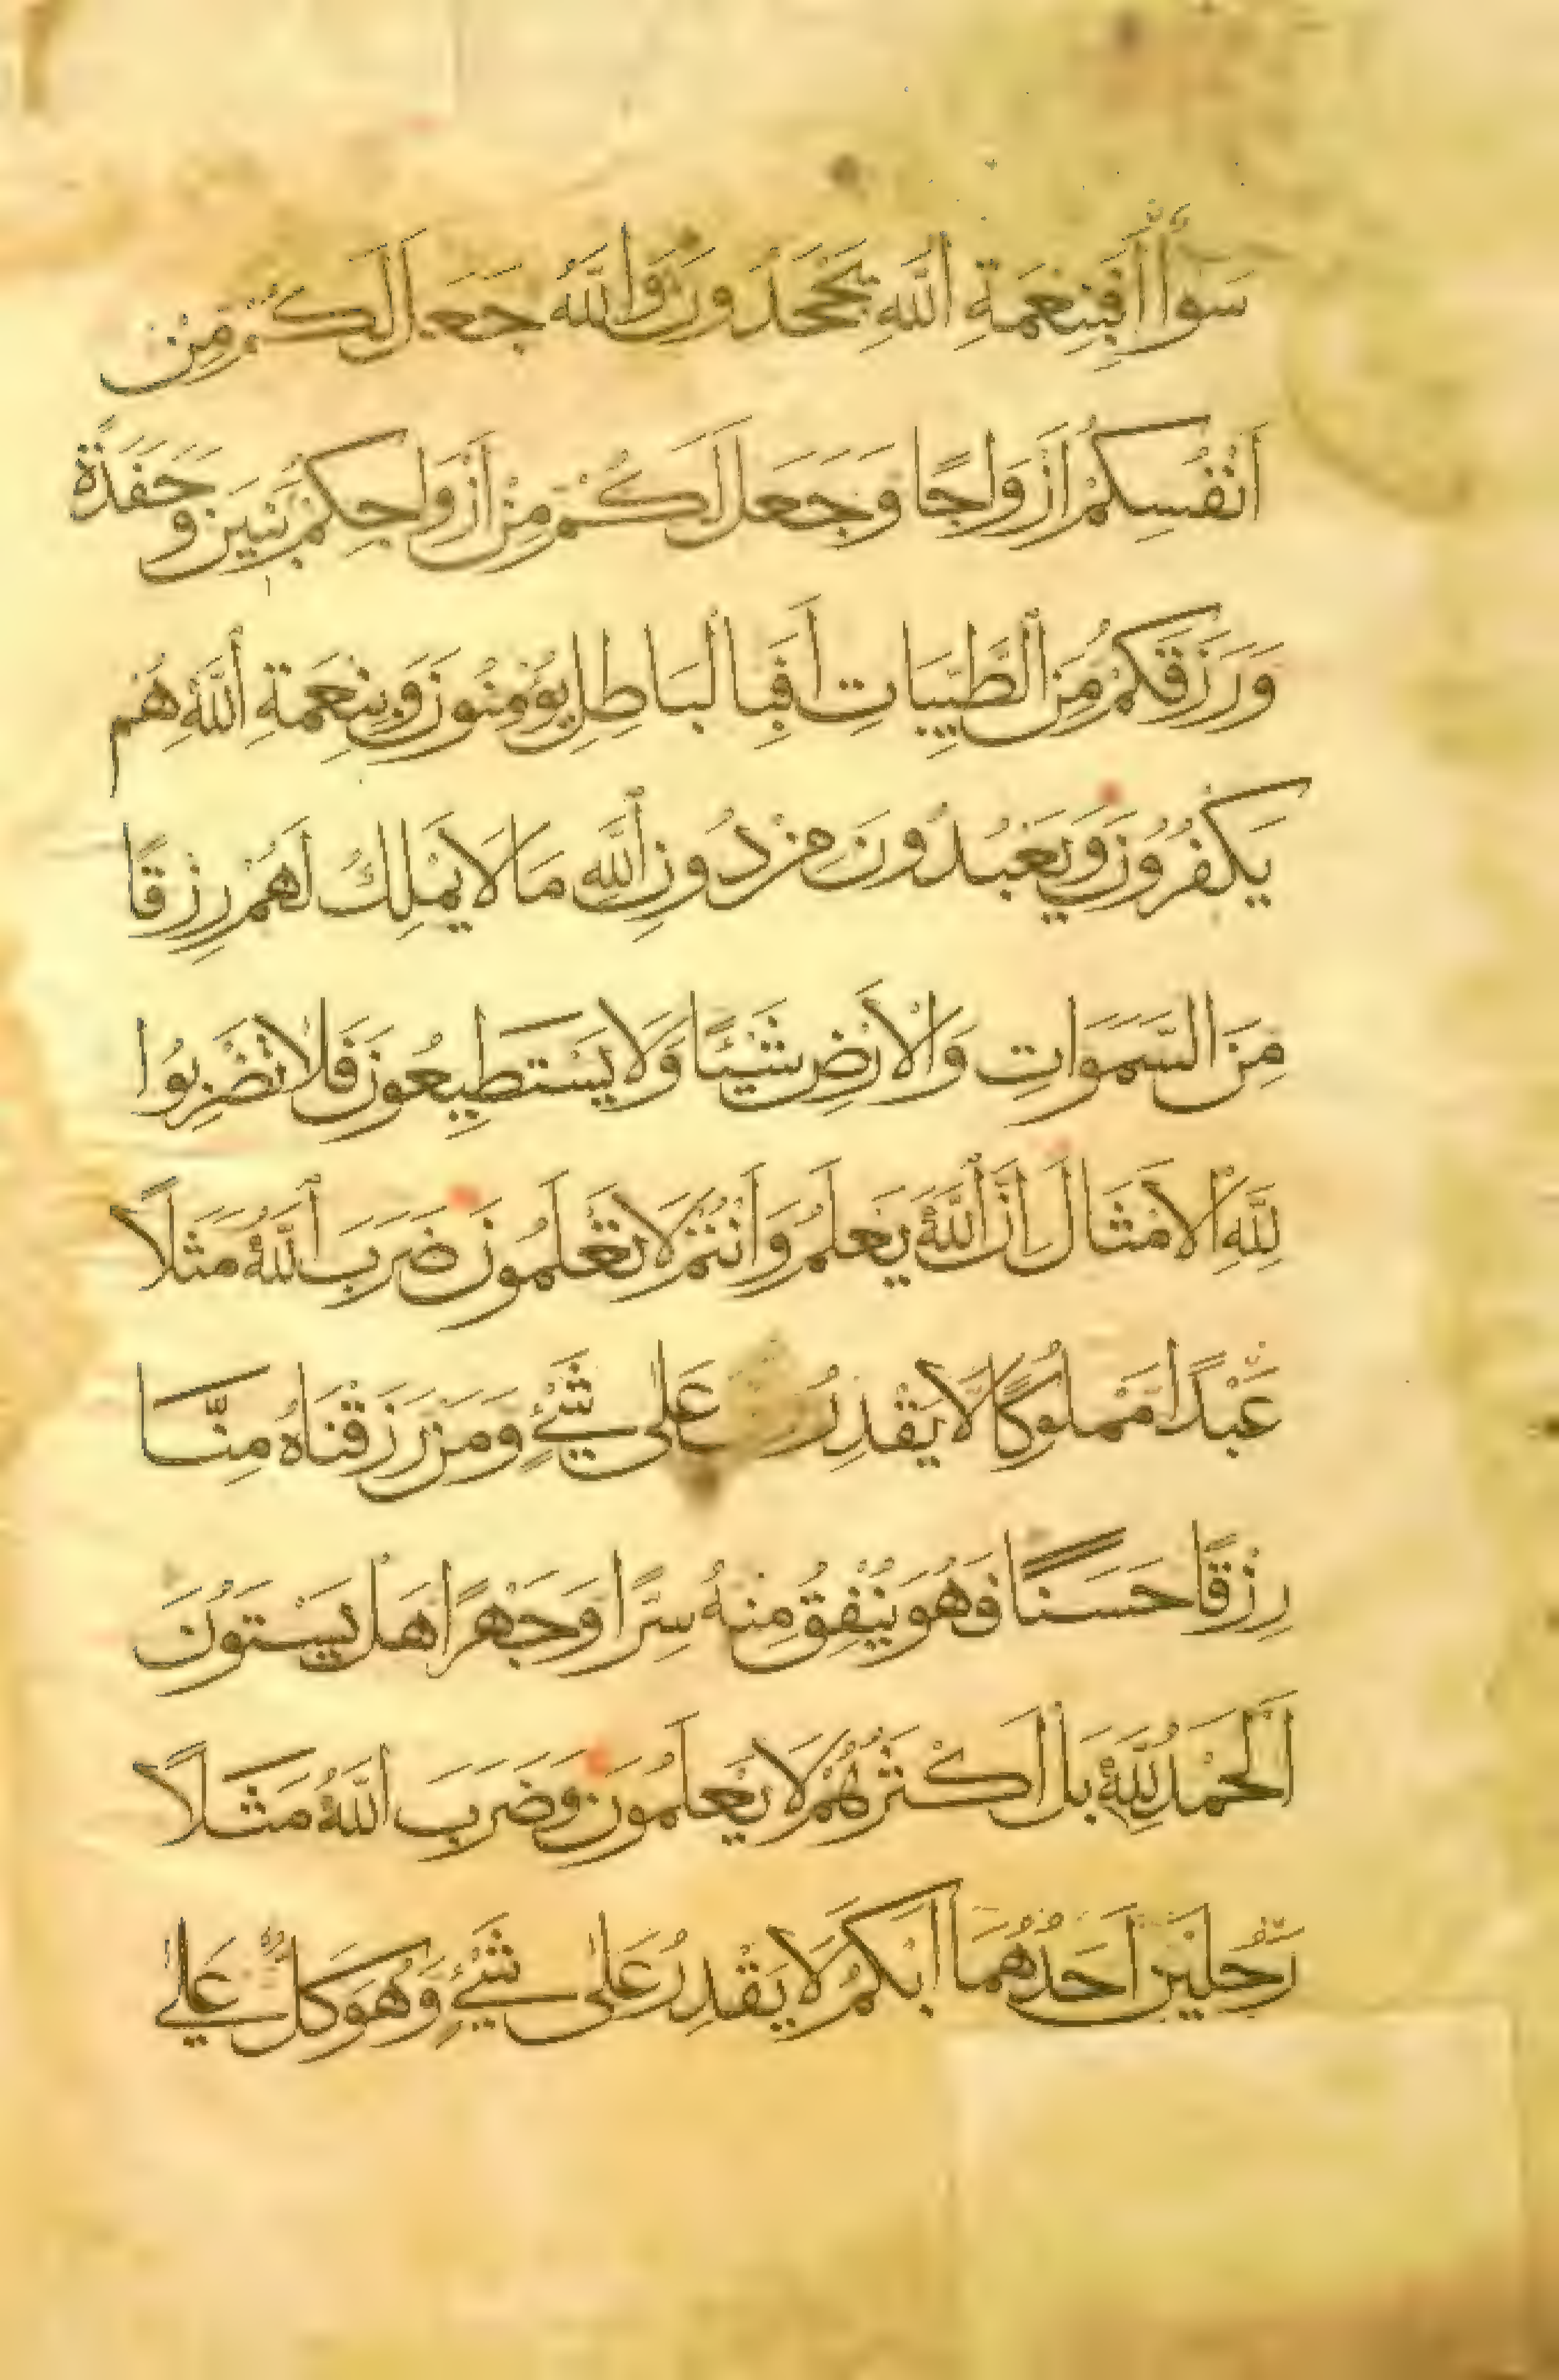 سَوَآءٌ أَفَبِنِعْمَةِ اللّٰهِ يَجْحَدُونَ وَاللّٰهُ جَعَلَ لَكُمْ مِنْ
اَنْفُسِكُمْ اَزْوَاجًا وَجَعَلَ لَكُمْ مِنْ اَزْوَاجِكُمْ بَنِينَ وَحَفَدَةً
وَرَزَقَكُمْ مِنَ الطَّيِّبَاتِ اَفَبِالْبَاطِلِ يُؤْمِنُونَ وَبِنِعْمَةِ اللّٰهِ هُمْ
يَكْفُرُونَ وَيَعْبُدُونَ مِنْ دُونِ اللّٰهِ مَا لَا يَمْلِكُ لَهُمْ رِزْقًا
مِنَ السَّمَوَاتِ وَالْاَرْضِ شَيْئًا وَلَا يَسْتَطِيعُونَ فَلَا تَضْرِبُوا
لِلّٰهِ الْاَمْثَالَ اِنَّ اللّٰهَ يَعْلَمُ وَاَنْتُمْ لَا تَعْلَمُونَ ضَرَبَ اللّٰهُ مَثَلًا
عَبْدًا مَمْلُوكًا لَا يَقْدِرُ عَلٰى شَيْءٍ وَمَنْ رَزَقْنَاهُ مِنَّا
رِزْقًا حَسَنًا فَهُوَ يُنْفِقُ مِنْهُ سِرًّا وَجَهْرًا هَلْ يَسْتَوُنَ
اَلْحَمْدُ لِلّٰهِ بَلْ اَكْثَرُهُمْ لَا يَعْلَمُونَ وَضَرَبَ اللّٰهُ مَثَلًا
رَّجُلَيْنِ اَحَدُهُمَا اَبْكَمُ لَا يَقْدِرُ عَلٰى شَيْءٍ وَهُوَ كَلٌّ عَلٰى